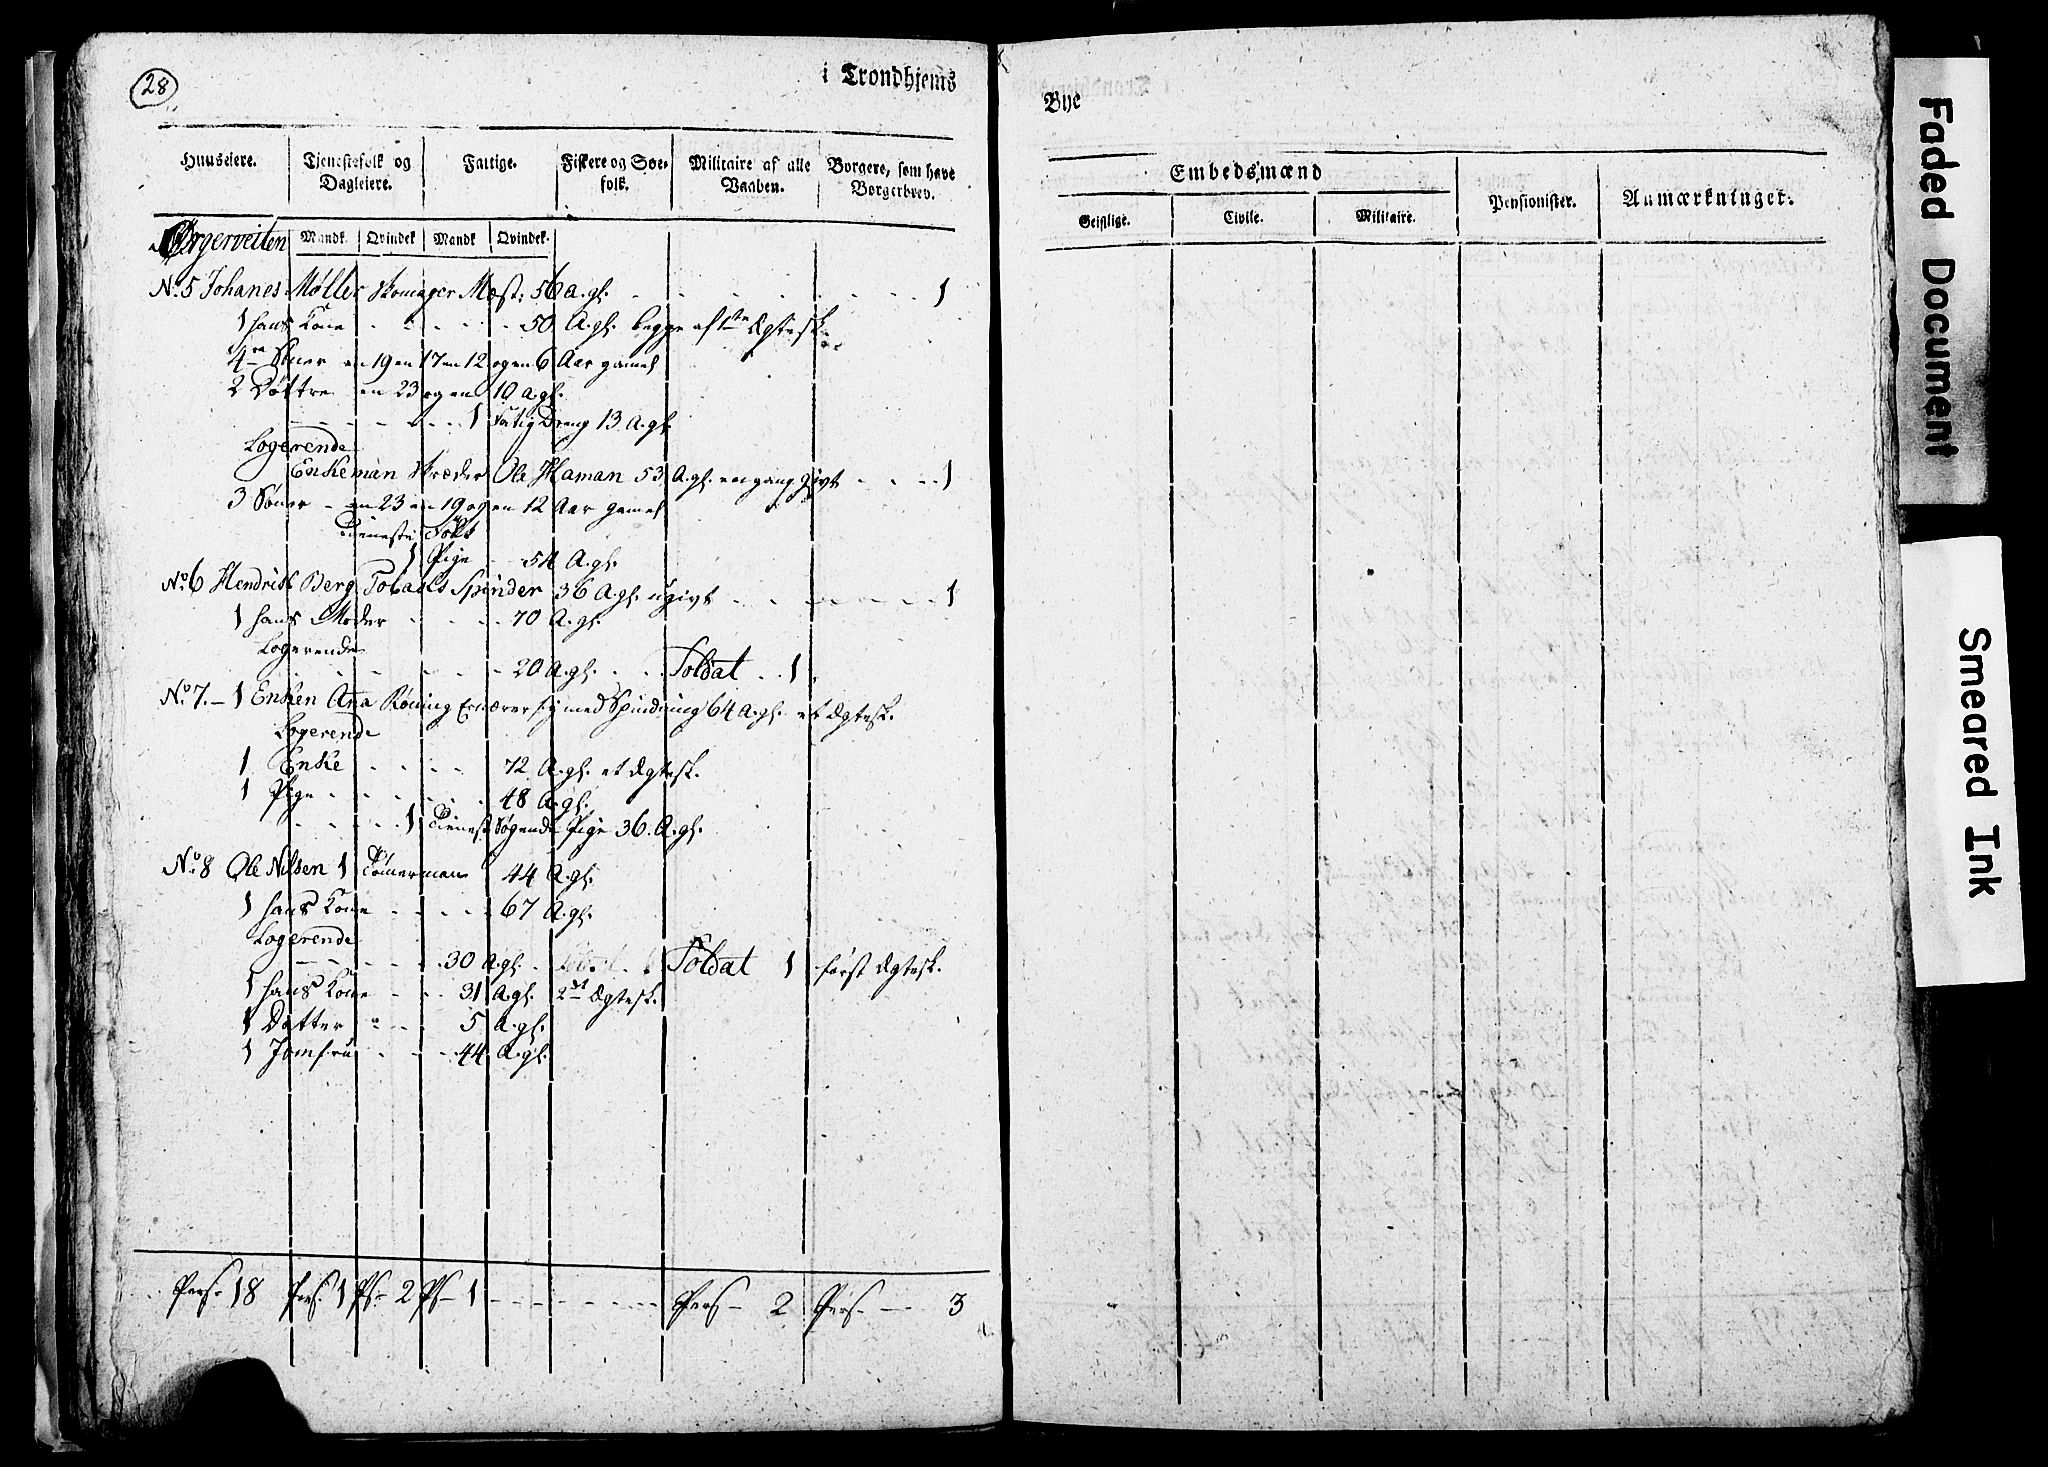 28
i Trondhjems
Huuseiere. Tjenestefolk og Dagleiere. Fattige. Fiskere og Søe-folk. Militaire af alle Vaaben. Borgere, som have Borgerbrev.
Mandk. Qvindek Mandk Qvindek.
Ørgerveiten
No. 5 Johanes Møller Skomager Mæst. 56 A. gl. - - - - - - 1
1 hans Kone - - - - 50 A. gl. begge af 1ste Ægtesk.
4re Sønner en 19 en 17 en 12 og en 6 Aar gamel
2 Døttre en 23 og en 10 A. gl.
- - - - 1 Fatig Dreng 13 A. gl.
Logerende
Enkeman Skræder Ole Haman 53 A. gl. en gang givt - - - 1
3 Sønner - en 23 en 19 og en 12 Aar gamel
Tieneste Folk
1 Pige - 54 A. gl.
No. 6 Hendrik Berg Tobaks Spinder 36 A. gl. ugivt - - - - - 1
1 hans Moder - - - 70 A. gl.
Logerende
- - - - - 20 A. gl. - - Soldat - - 1
No. 7. - 1 Enken Ana Røning Ernærer sig med Spindning 64 A. gl. et Ægtesk.
Logerende
1 Enke - - - - 72 A. gl. et Ægtesk.
1 Pige - - - - - 48 A. gl.
- - - - 1 Tienest Søgende Pige 36. A. gl.
No. 8 Ole Nilsen 1 Tømerman 44 A. gl.
1 hans Kone - - - - 67 A. gl.
Logerende
- - - - - 30 A. gl. - Soldat 1 første Ægtesk.
1 hans Kone - - - 31 A. gl. 2det Ægtesk.
1 Datter - - - 5 A. gl.
1 Jomfru - - - 44 A. gl.
Pers. 18 Pers. 1 Ps - 2 Ps - 1 - - - - - - Pers - 2 Pers. - - 3
Bye
Embedsmænd
Pensionister. Anmærkninger.
Geistlige. Civile. Militaire.
Faded Document
Smeared Ink